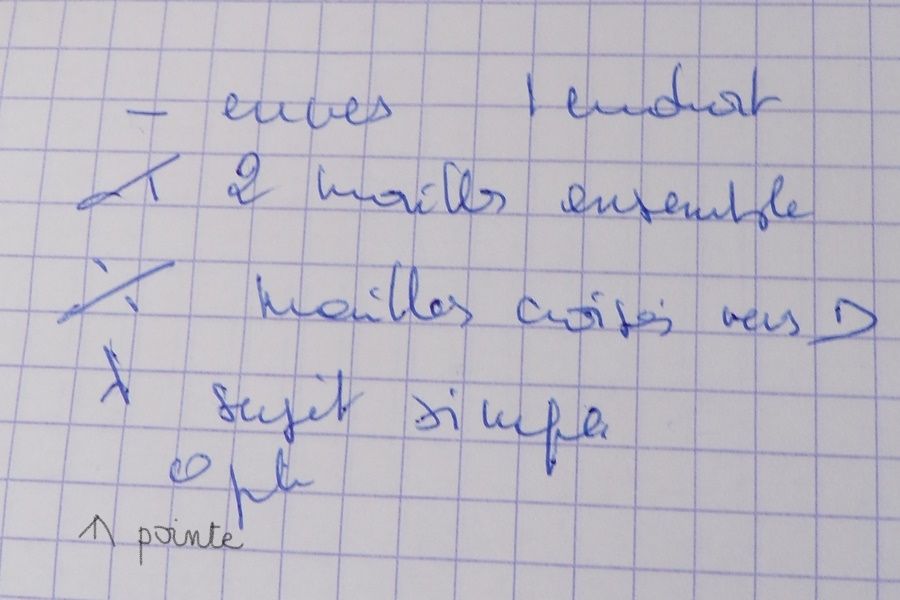 — envers | endroit
⟋ 2 mailles ensemble
⟋ mailles croisés vers D
λ surjet simple
O jeté
↑ pointe